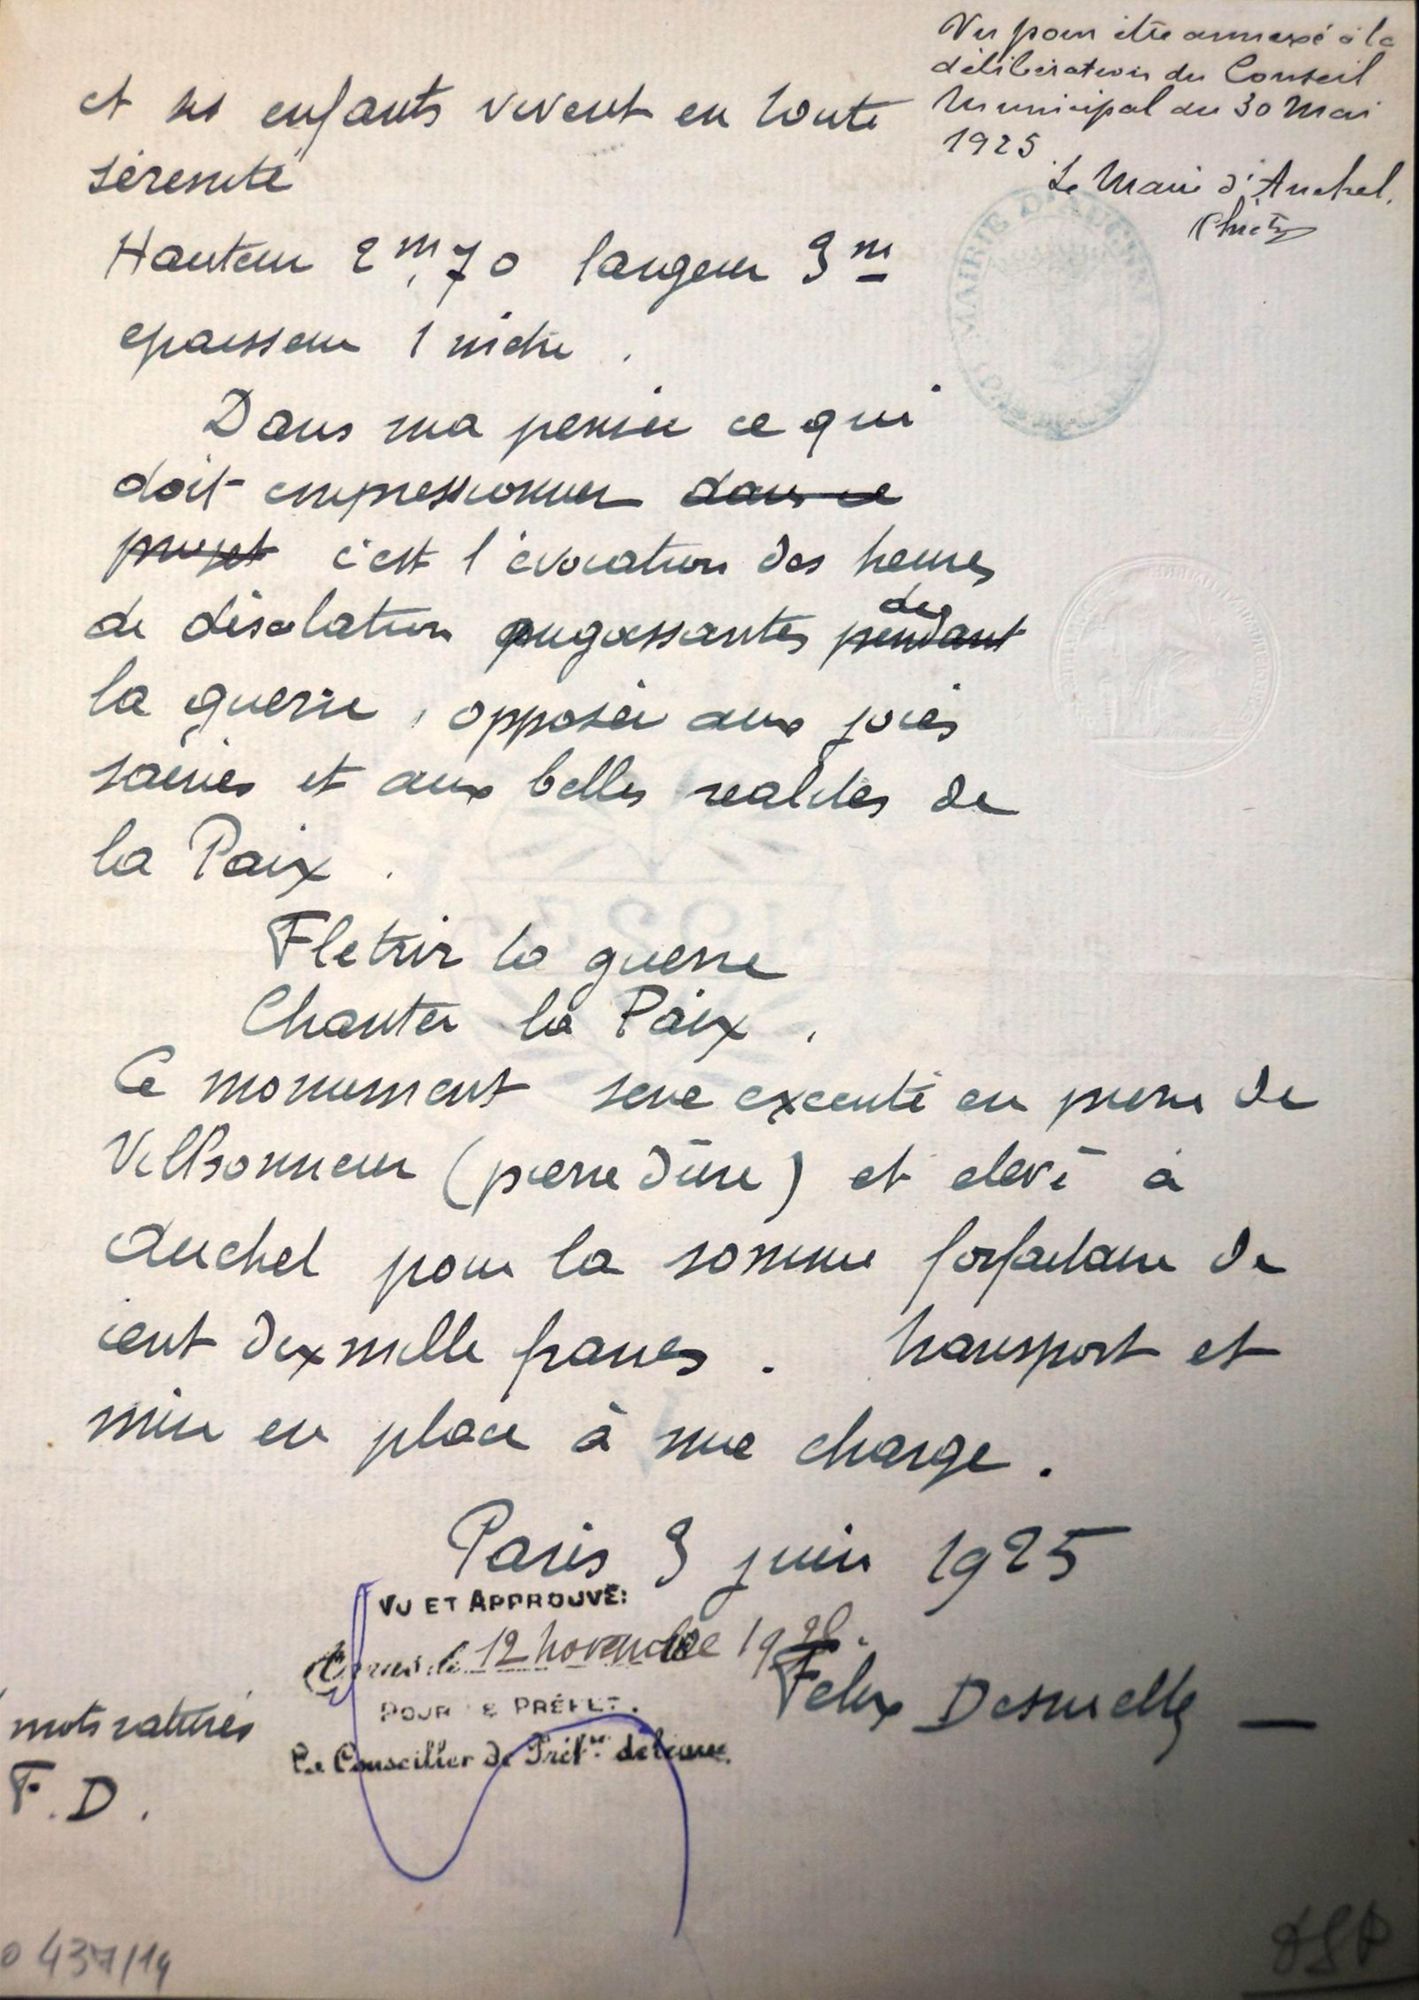 Vu pour être annexé à la
délibération du Conseil
Municipal du 30 Mai
1925
Le Maire d'Auchel,
et ses enfants vivent en toute
sérénité
Hauteur 2m,70 largeur 3m
epaisseur 1 mètre.
Dans ma pensée ce qui
doit impressionner dans ce
projet c'est l'évocation des heures
de désolation angoissantes pendant de
la guerre, opposée aux joies
saines et aux belles réalités de
la Paix.
Fletrir la guerre
Chanter la Paix.
Ce monument sera executé en pierre de
Vilhonneur (pierre dure) et elevé à
Auchel pour la somme forfaitaire de
cent dix mille francs. Transport et
mise en place à ma charge.
Paris 3 juin 1925
VU ET APPROUVÉ:
12 novembre 19
Felix Desruelles
POUR LE PRÉFET.
Le Conseiller de Préf.re délégué.
mots raturés
F.D.
437/14
MAIRIE D'AUCHEL